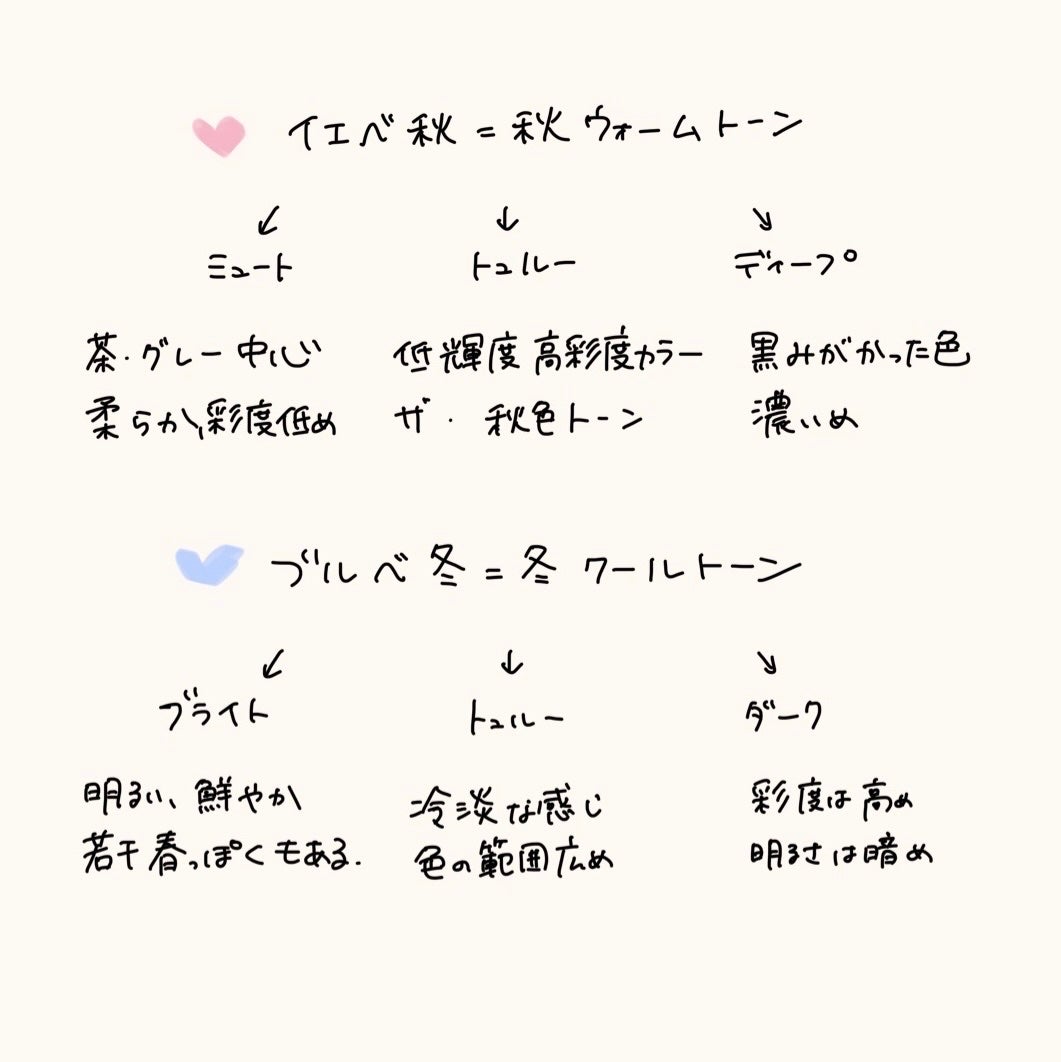 イエベ秋 = 秋ウォームトーン
↙ ↓ ↘
ミュート トュルー ディープ
茶・グレー中心 低輝度高彩度カラー 黒みがかった色
柔らか、彩度低め ザ・秋色トーン 濃いめ
ブルベ冬 = 冬クールトーン
↙ ↓ ↘
ブライト トュルー ダーク
明るい、鮮やか 冷淡な感じ 彩度は高め
若干春っぽくもある. 色の範囲広め 明るさは暗め